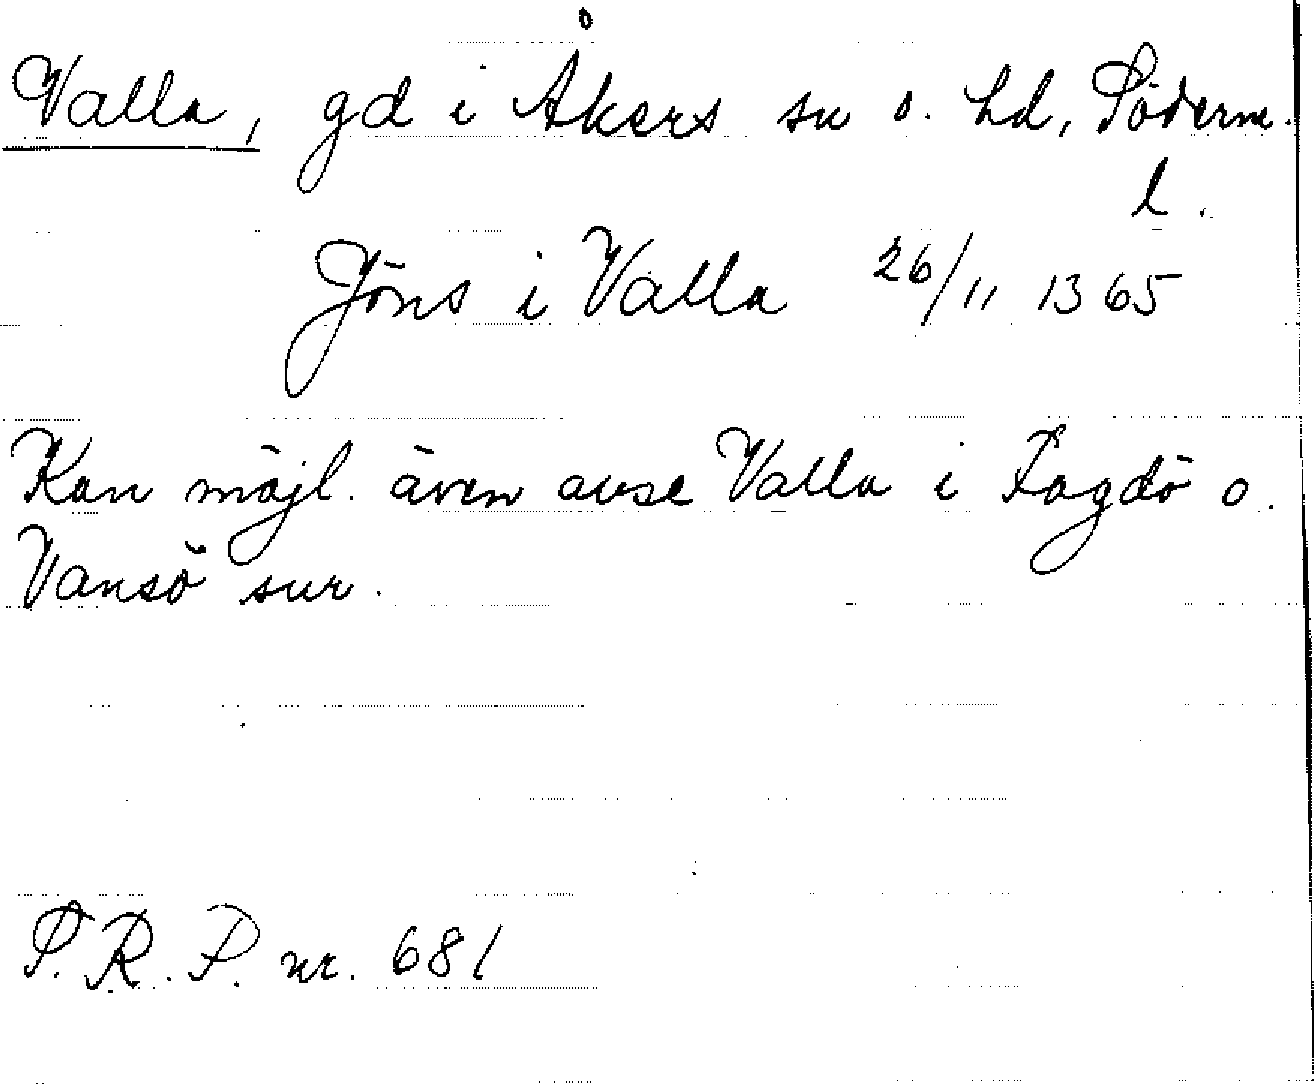 Valla, gd i Åkers sn o. hd, Söderm.
l.
Jöns i Valla 26/11 1365
Kan möjl. även avse Valla i Fogdö o.
Vansö snr.
S.R.P. nr. 681